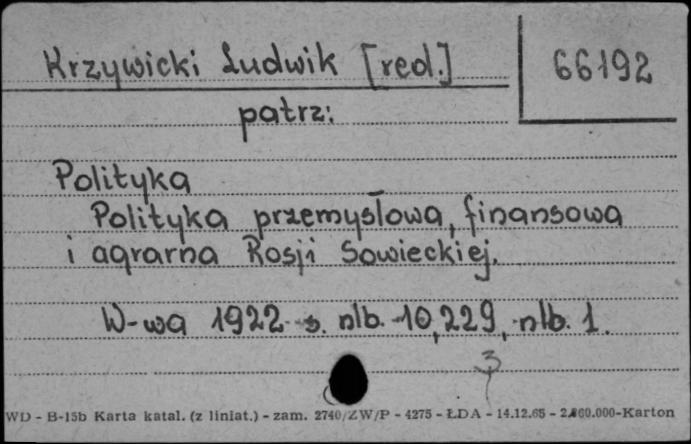 Krzywicki Ludwik [red.] 66192
patrz:
Polityka
Polityka przemysłowa, finansowa
i agrarna Rosji Sowieckiej.
W-wa 1922 s. nlb. 10, 229, nlb. 1.
3
WD - B-15b Karta katal. (z liniat.) - zam. 2740/ZW/P - 4275 - ŁDA - 14.12.65 -